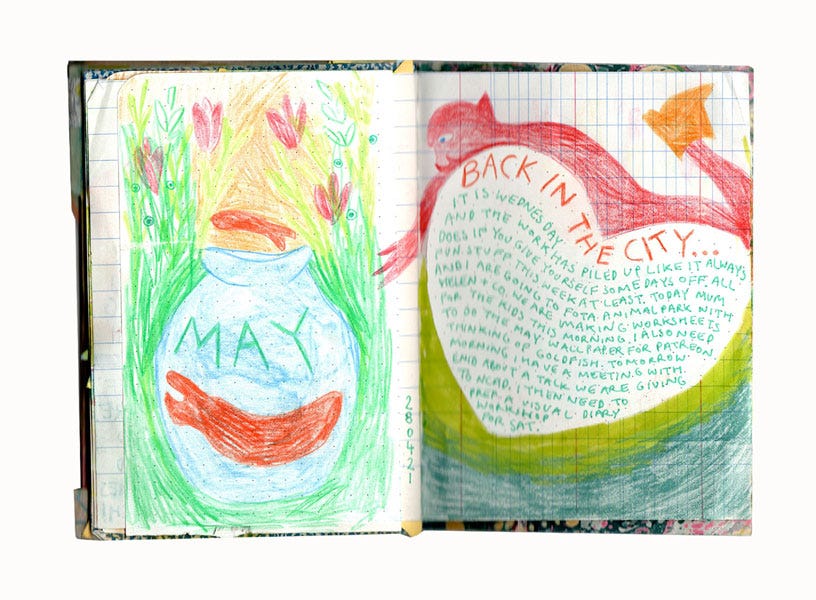 MAY
280421
BACK IN THE CITY...
IT IS WEDNESDAY
AND THE WORK HAS PILED UP LIKE IT ALWAYS
DOES IF YOU GIVE YOURSELF SOME DAYS OFF. ALL
STUFF THIS WEEK AT LEAST. TODAY MUM
AND I ARE GOING TO FOTA ANIMAL PARK WITH
HELEN & CO. WE ARE MAKING WORKSHEETS
FOR THE KIDS THIS MORNING. I ALSO NEED
TO DO THE MAY WALLPAPER FOR PATREON.
THINKING OF GOLDFISH. TOMORROW
MORNING I HAVE A MEETING WITH
ABOUT A TALK WE ARE GIVING
TO NCAD. I THEN NEED TO
PREP A VISUAL DIARY
WORKSHOP
FOR SAT.